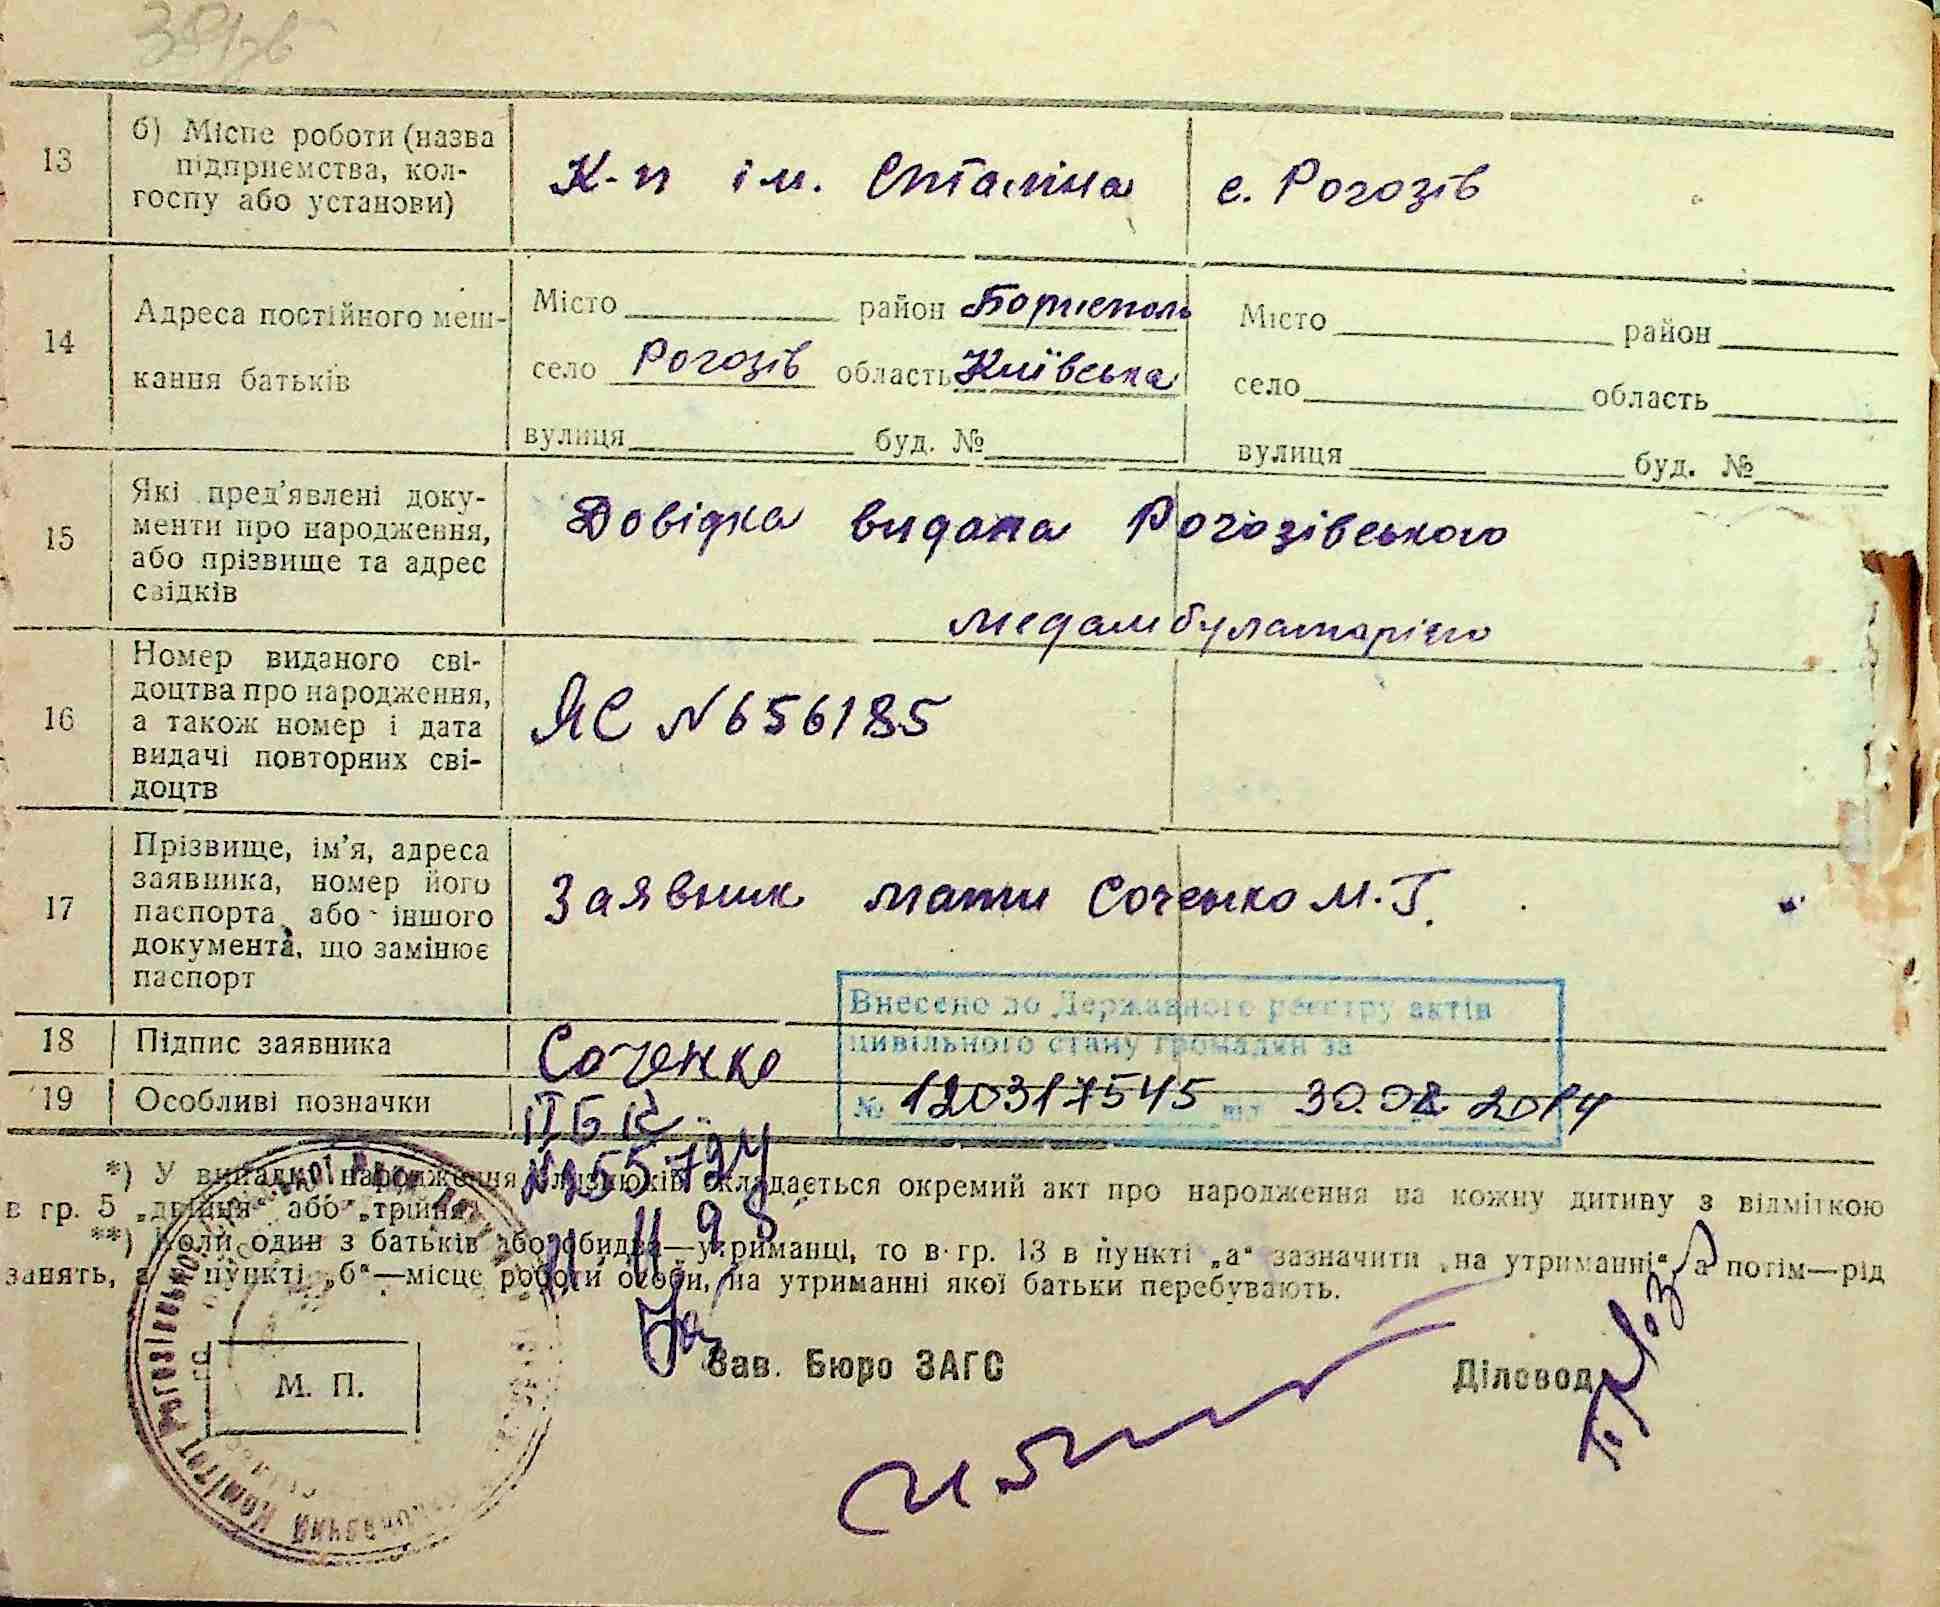 13
б) Місце роботи (назва
підприємства, кол-
госпу або установи)
К-п ім. Сталіна
с. Рогозів
14
Адреса постійного меш-
кання батьків
Місто район Бориспол
село Рогозів область Київська
вулиця буд. №
Місто район
село область
вулиця буд. №
15
Які пред'явлені доку-
менти про народження,
або прізвище та адрес
свідків
Довідка видана Рогозівського
медамбулаторією
16
Номер виданого сві-
доцтва про народження,
а також номер і дата
видачі повторних сві-
доцтв
ЯС №656185
17
Прізвище, ім'я, адреса
заявника, номер його
паспорта або іншого
документа, що замінює
паспорт
Заявник мати Соченко М.Г.
Внесено до Державного реєстру актів
цивільного стану громадян за
№ 120317545 від 30.08.2014
18
Підпис заявника
Соченко
19
Особливі позначки
ІІБК
№255724
11 98
*) У випадку народження близнюків складається окремий акт про народження на кожну дитину з відміткою
в гр. 5 „двійня“ або „трійня“
**) Коли один з батьків або обидва—утриманці, то в гр. 13 в пункті „а“ зазначити „на утриманні“, а потім—рід
занять, а в пункті „б“—місце роботи особи, на утриманні якої батьки перебувають.
М. П.
Зав. Бюро ЗАГС
Діловод